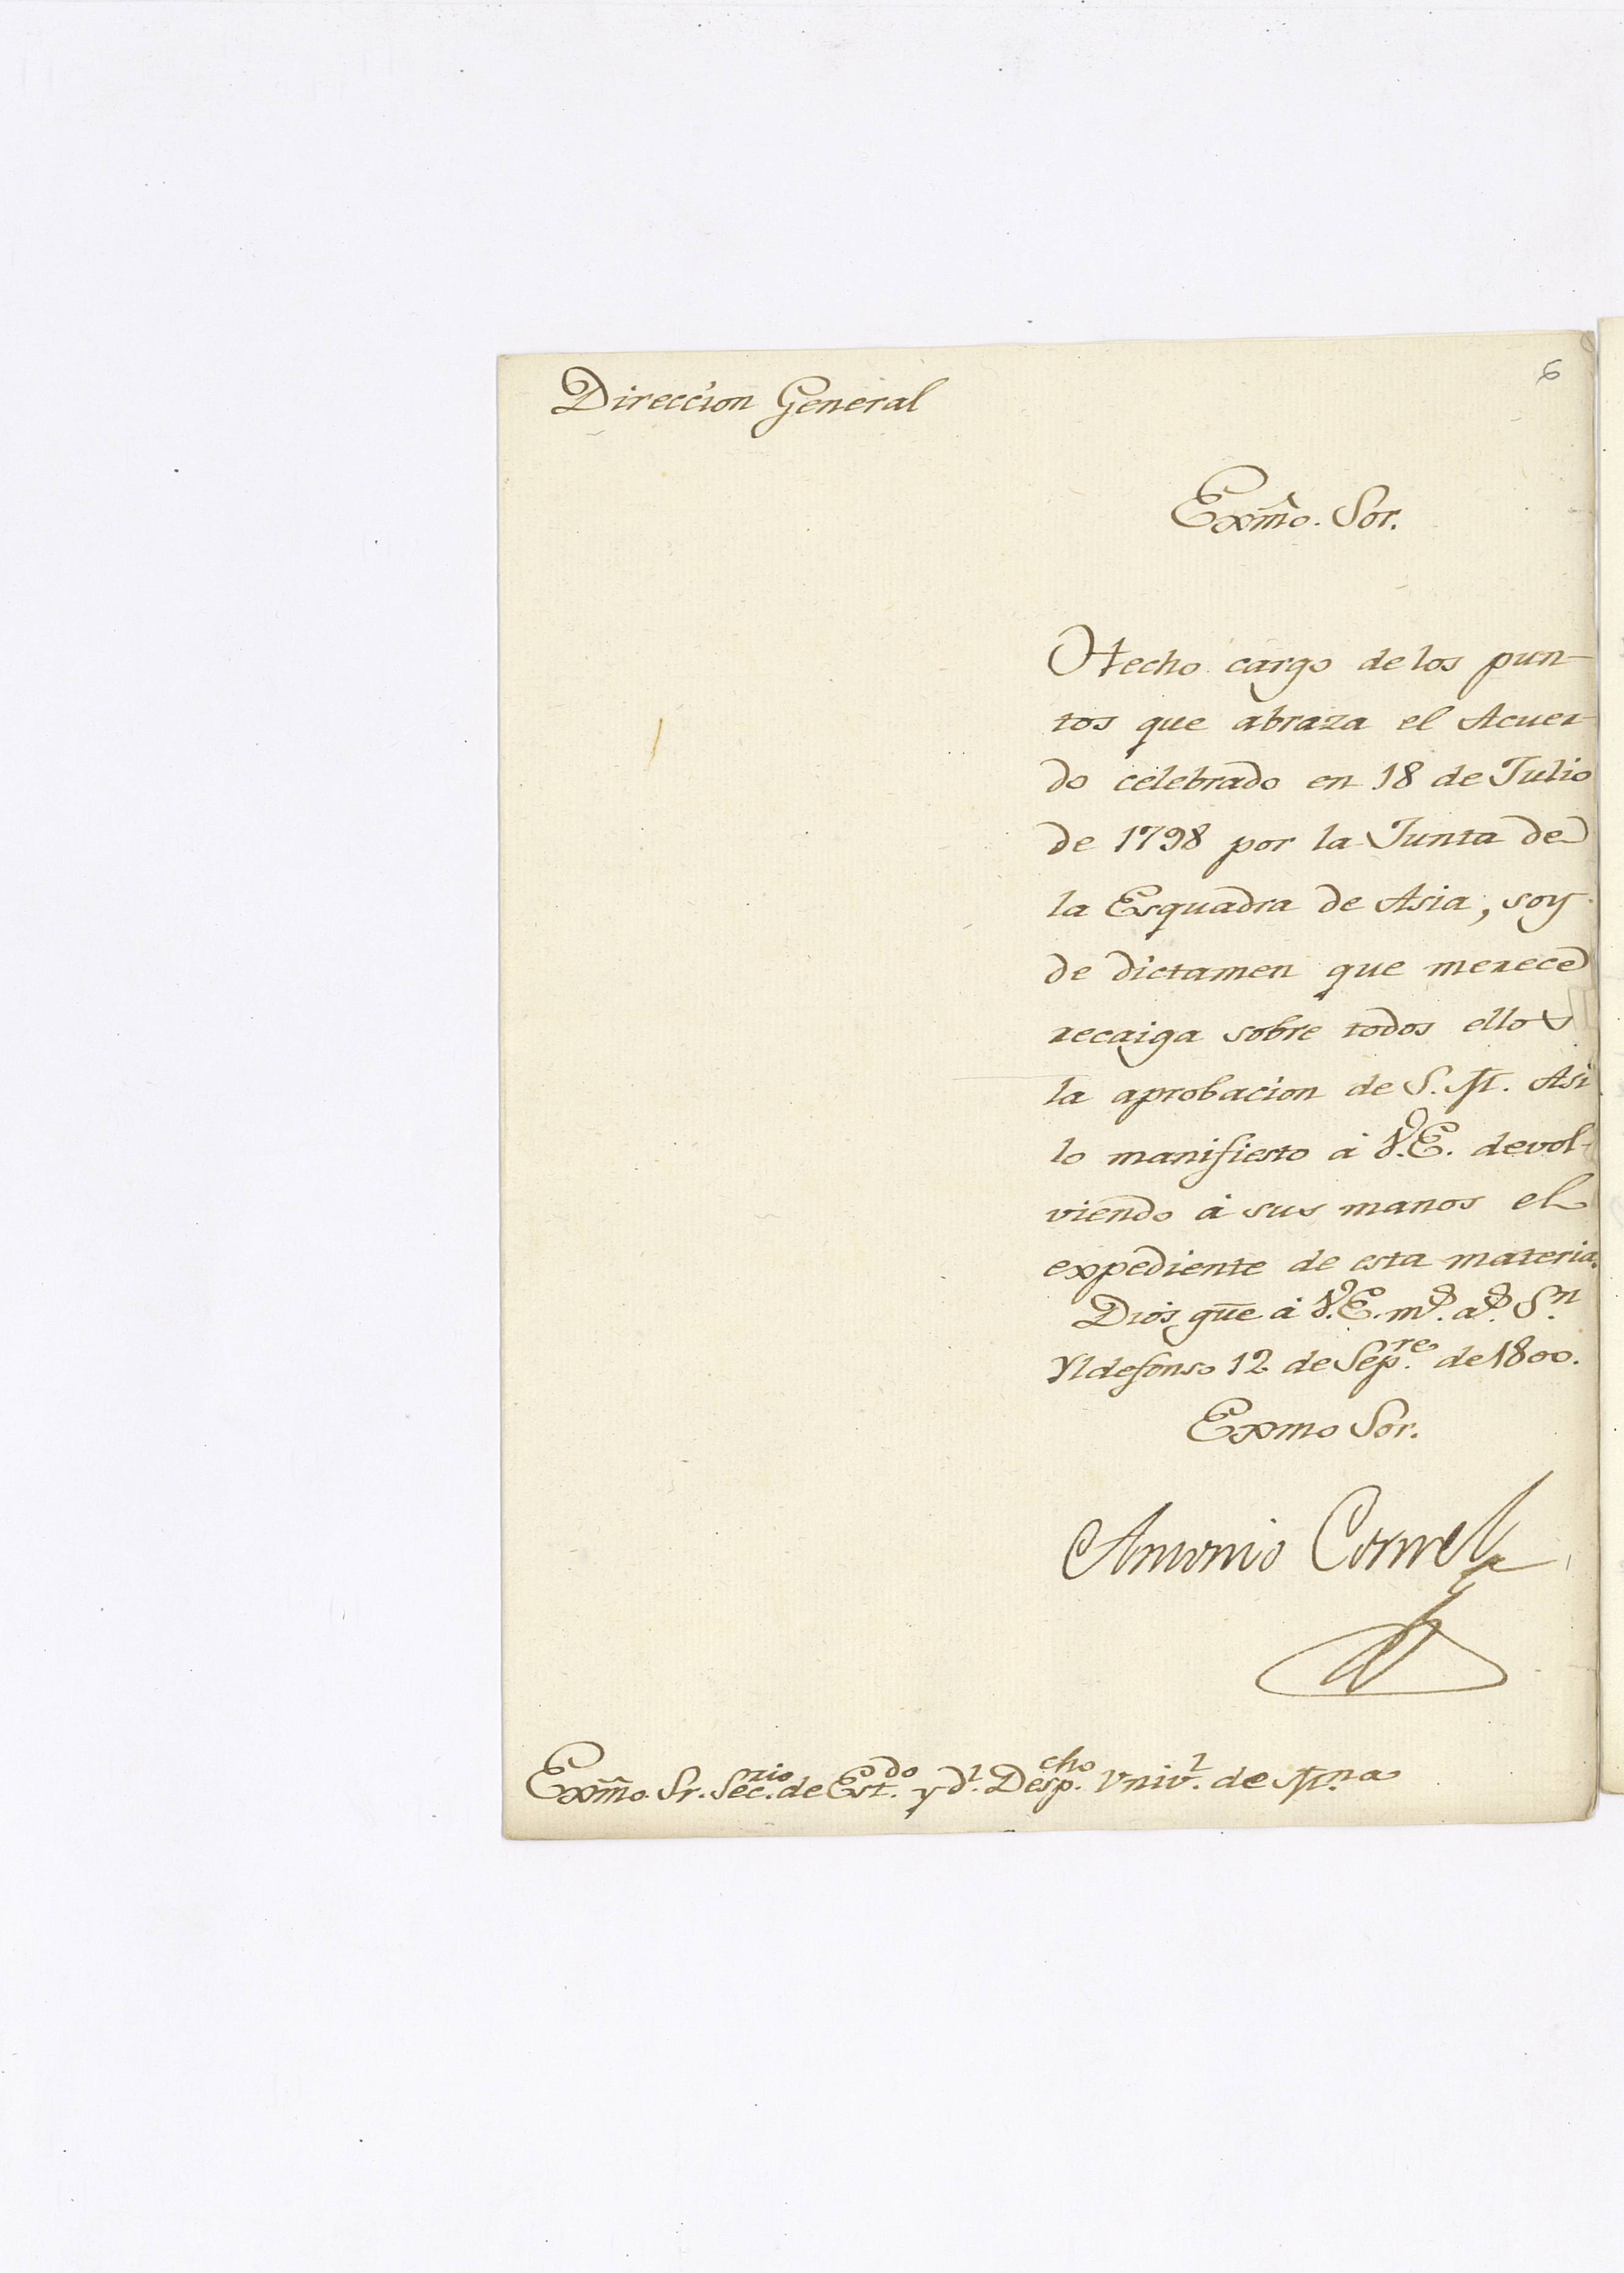 6
Direccion General
Exm̃o. Sor.
Hecho cargo de los pun-
tos que abraza el Acuer-
do celebrado en 18 de Julio
de 1798 por la Junta de
la Esquadra de Asia, soy
de dictamen que merece
recaiga sobre todos ellos
la aprobacion de S. M. Asi
lo manifiesto á V. E. devol-
viendo á sus manos el
expediente de esta materia.
Dios gūe á V. E. ms. as. Sn.
Yldefonso 12 de Sepre. de 1800.
Exmo Sor.
Antonio Cornel
Exm̃o. Sr. Secrio. de Estdo. y dl. Despcho. Univl. de Mna